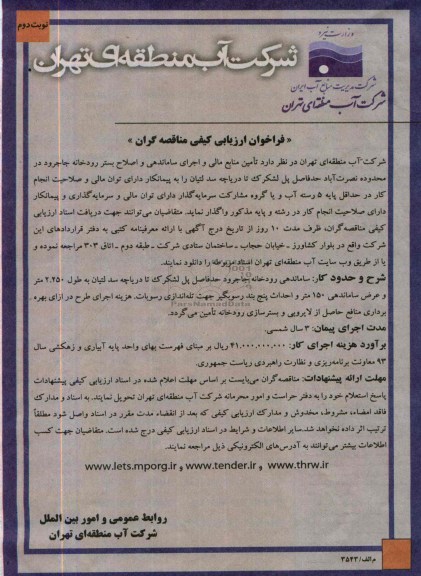 نوبت دوم
وزارت نیرو
شرکت آب منطقه‌ای تهران
شرکت مدیریت منابع آب ایران
شرکت آب منطقه‌ای تهران
« فراخوان ارزیابی کیفی مناقصه گران »
شرکت آب منطقه‌ای تهران در نظر دارد تأمین منابع مالی و اجرای ساماندهی و اصلاح بستر رودخانه جاجرود در
محدوده نصرت‌آباد حدفاصل پل لشکرک تا دریاچه سد لتیان را به پیمانکار دارای توان مالی و صلاحیت انجام
کار در حداقل پایه ۵ رسته آب و یا گروه مشارکت سرمایه‌گذار دارای توان مالی و سرمایه‌گذاری و پیمانکار
دارای صلاحیت انجام کار در رشته و پایه مذکور واگذار نماید. متقاضیان می‌توانند جهت دریافت اسناد ارزیابی
کیفی مناقصه‌گران، ظرف مدت ۱۰ روز از تاریخ درج آگهی با ارائه معرفینامه کتبی به دفتر قراردادهای این
شرکت واقع در بلوار کشاورز ـ خیابان حجاب ـ ساختمان ستادی شرکت ـ طبقه دوم ـ اتاق ۳۰۳ مراجعه نموده و
یا از طریق وب سایت آب منطقه‌ای تهران اسناد مربوطه را دانلود نمایند.
شرح و حدود کار: ساماندهی رودخانه جاجرود حدفاصل پل لشکرک تا دریاچه سد لتیان به طول ۲.۴۵۰ متر
و عرض ساماندهی ۱۵۰ متر و احداث پنج بند رسوبگیر جهت تله‌اندازی رسوبات. هزینه اجرای طرح در ازای بهره
برداری منافع حاصل از لایروبی و بسترسازی رودخانه تأمین می‌گردد.
مدت اجرای پیمان: ۳ سال شمسی.
برآورد هزینه اجرای کار: ۴۱.۰۰۰.۰۰۰.۰۰۰ ریال بر مبنای فهرست بهای واحد پایه آبیاری و زهکشی سال
۹۳ معاونت برنامه‌ریزی و نظارت راهبردی ریاست جمهوری.
مهلت ارائه پیشنهادات: مناقصه‌گران می‌بایست بر اساس مهلت اعلام شده در اسناد ارزیابی کیفی پیشنهادات
پاسخ استعلام خود را به دفتر حراست و امور محرمانه شرکت آب منطقه‌ای تهران تحویل نمایند. به اسناد و مدارک
فاقد امضاء، مشروط، مخدوش و مدارک ارزیابی کیفی که بعد از انقضاء مدت مقرر در اسناد واصل شود مطلقاً
ترتیب اثر داده نخواهد شد.سایر اطلاعات و شرایط در اسناد ارزیابی کیفی درج شده است. متقاضیان جهت کسب
اطلاعات بیشتر می‌توانند به آدرس‌های الکترونیکی ذیل مراجعه نمایند.
www.thrw.ir و www.tender.ir و www.lets.mporg.ir
روابط عمومی و امور بین الملل
شرکت آب منطقه‌ای تهران
م‌الف/۳۵۴۳